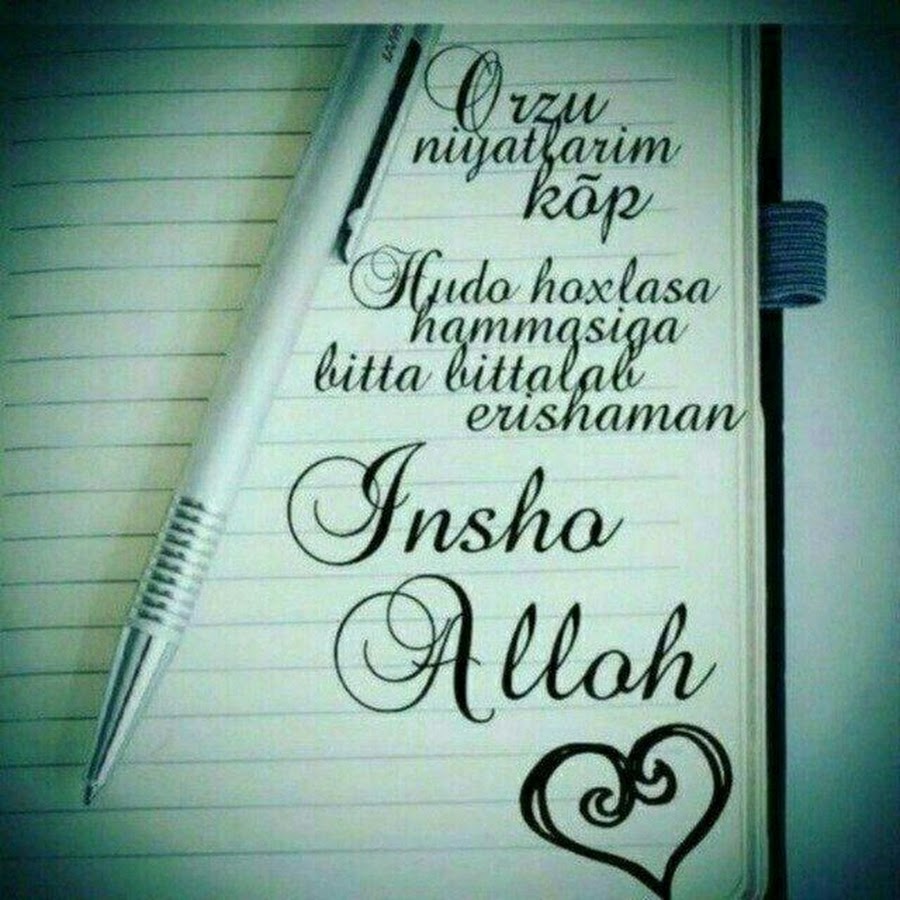 Orzu
niyatlarim
kõp
Hudo hoxlasa
hammasiga
bitta bittalab
erishaman
Insho
Alloh